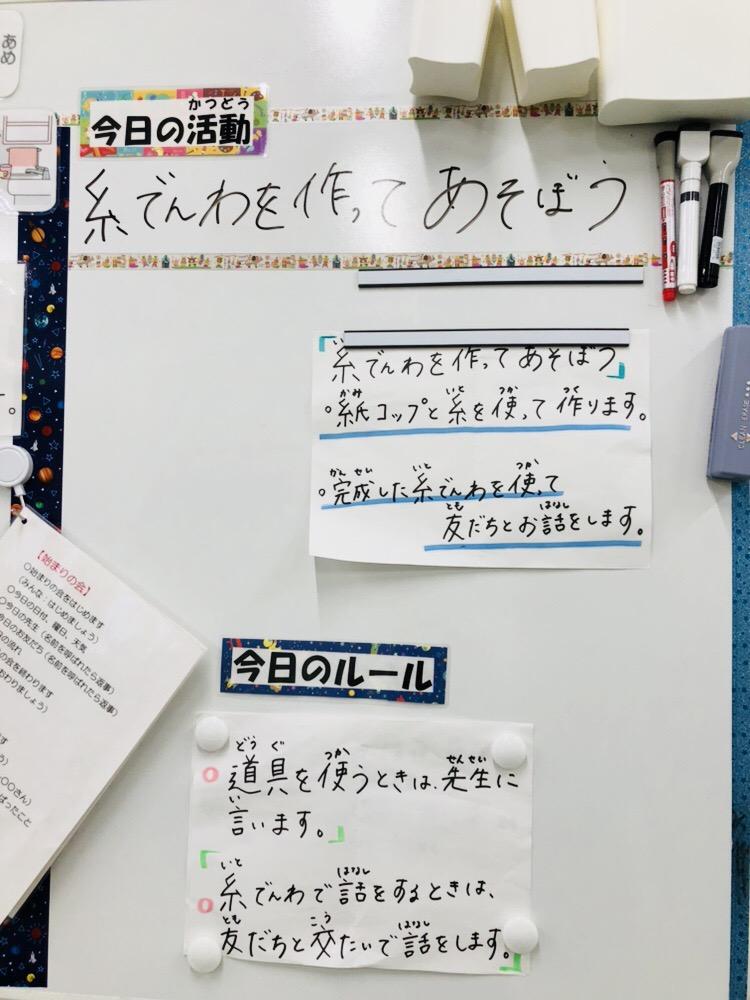 あめ
かつどう
今日の活動
糸でんわを作ってあそぼう
いと
「糸でんわを作ってあそぼう」
かみ いと つか つく
○紙コップと糸を使って作ります。
かんせい いと つか
○完成した糸でんわを使って
とも はなし
友だちとお話をします。
CLEAN ERASE
【始まりの会】
○始まりの会をはじめます
（みんな：はじめましょう）
○今日の日付、曜日、天気
○今日の先生（名前を呼ばれたら返事）
今日のお友だち（名前を呼ばれたら返事）
の流れ
の会を終わります
おわりましょう）
○○さん）
ばったこと
今日のルール
どうぐ つか せんせい
○道具を使うときは、先生に
い
言います。」
いと はなし
「○糸でんわで話をするときは、
とも こう はなし
友だちと交たいで話をします。」